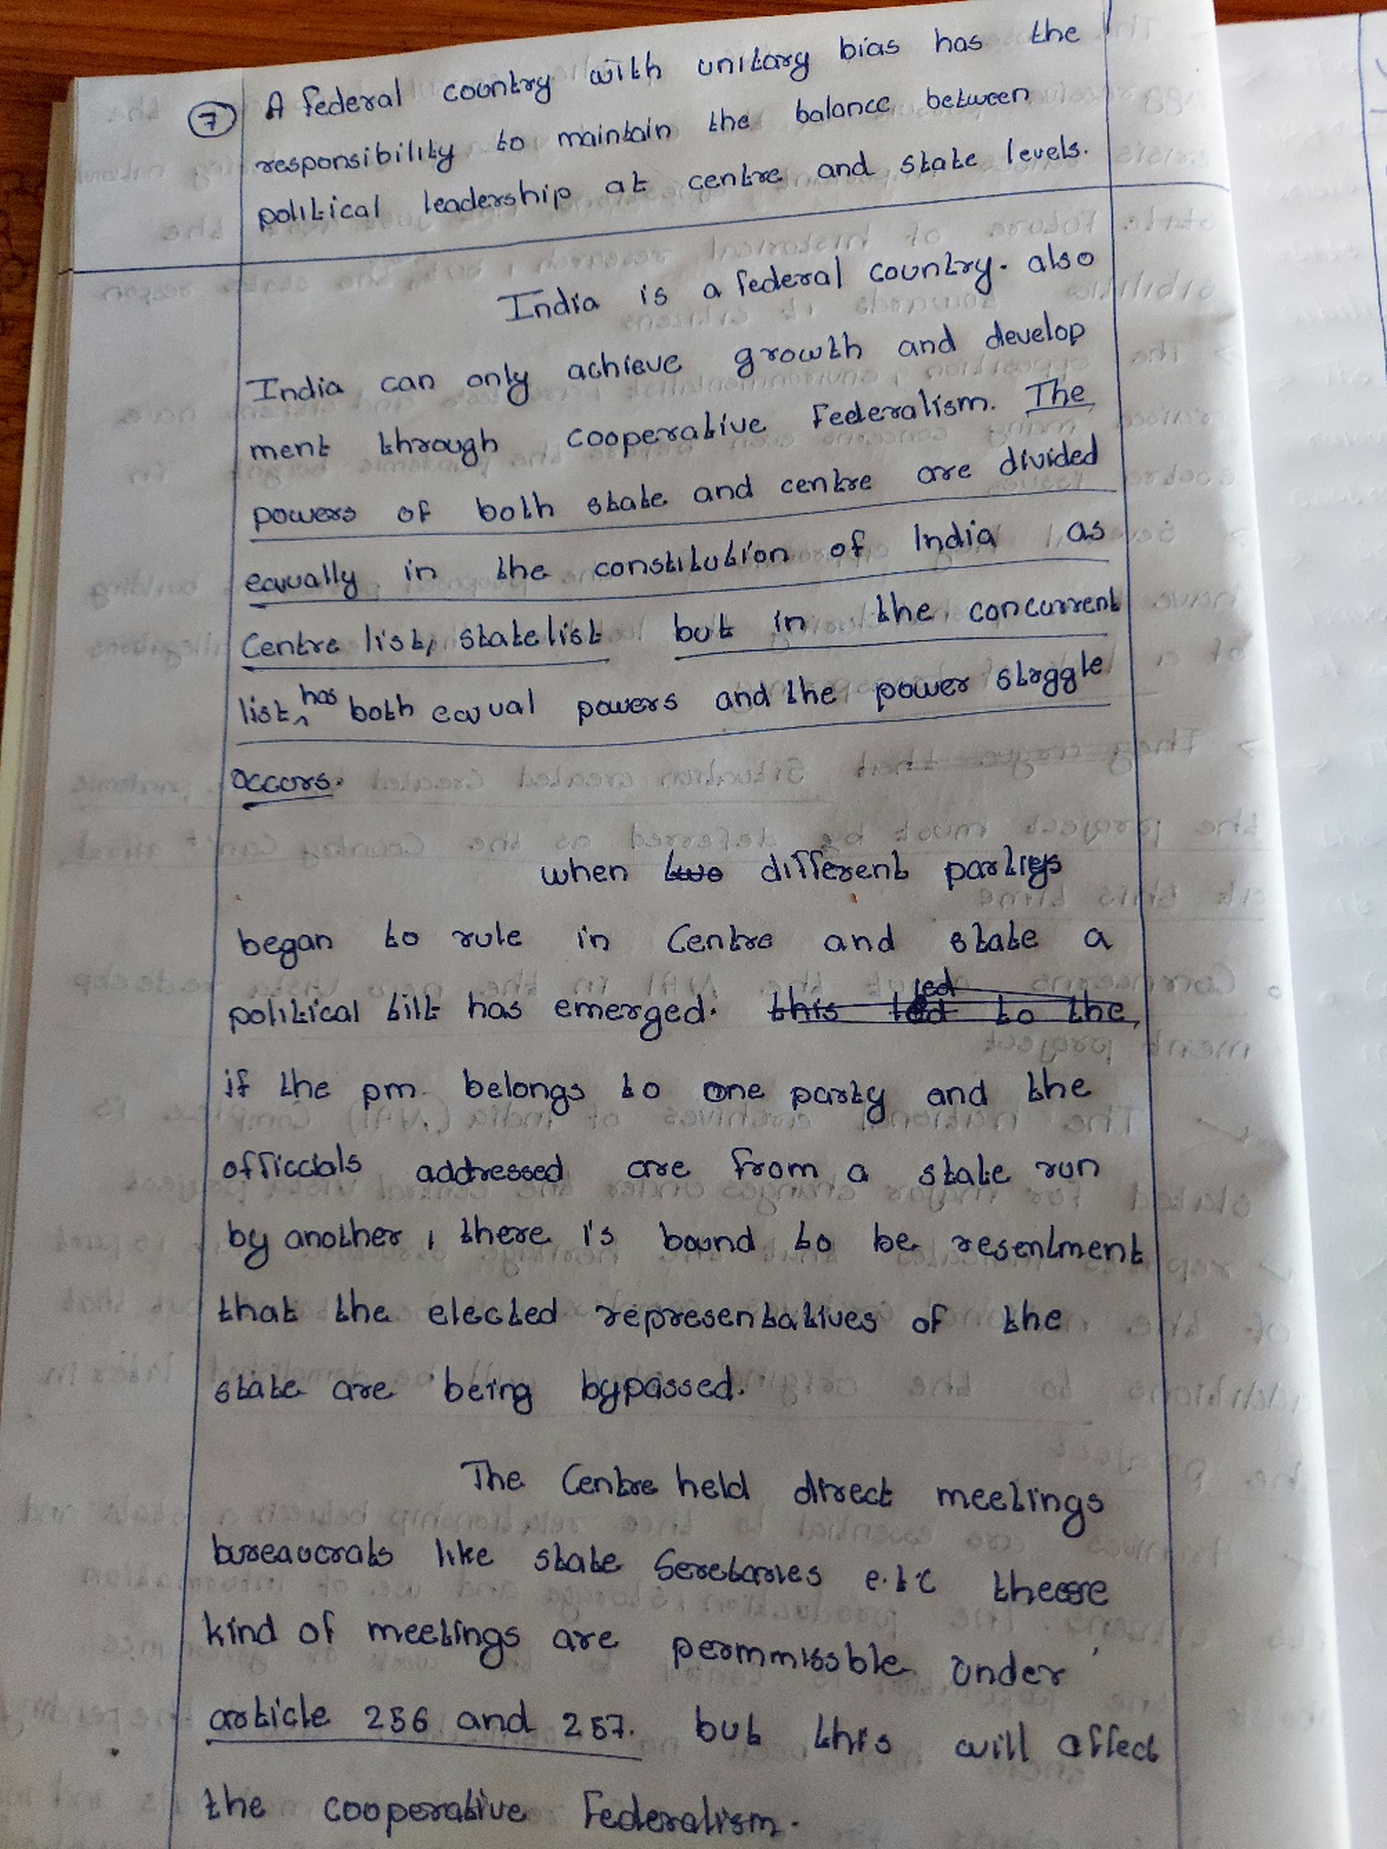 7 A federal country with unitary bias has the
responsibility to maintain the balance between
political leadership at centre and state levels.
India is a federal country. also
India can only achieve growth and develop
ment through cooperative Federalism. The
powers of both state and centre are divided
equally in the constitution of India as
Centre list, state list but in the concurrent
list has both equal powers and the power strggle
occurs.
when two different parties
began to rule in Centre and state a
political tilt has emerged. this led to the
if the pm belongs to one party and the
officials addressed are from a state run
by another, there is bound to be resentment
that the elected representatives of the
state are being bypassed.
The Centre held direct meetings
bureaucrats like state Seretaries e.t.c these
kind of meetings are permmissble under
article 256 and 257. but this will affect
the cooperative Federalism.